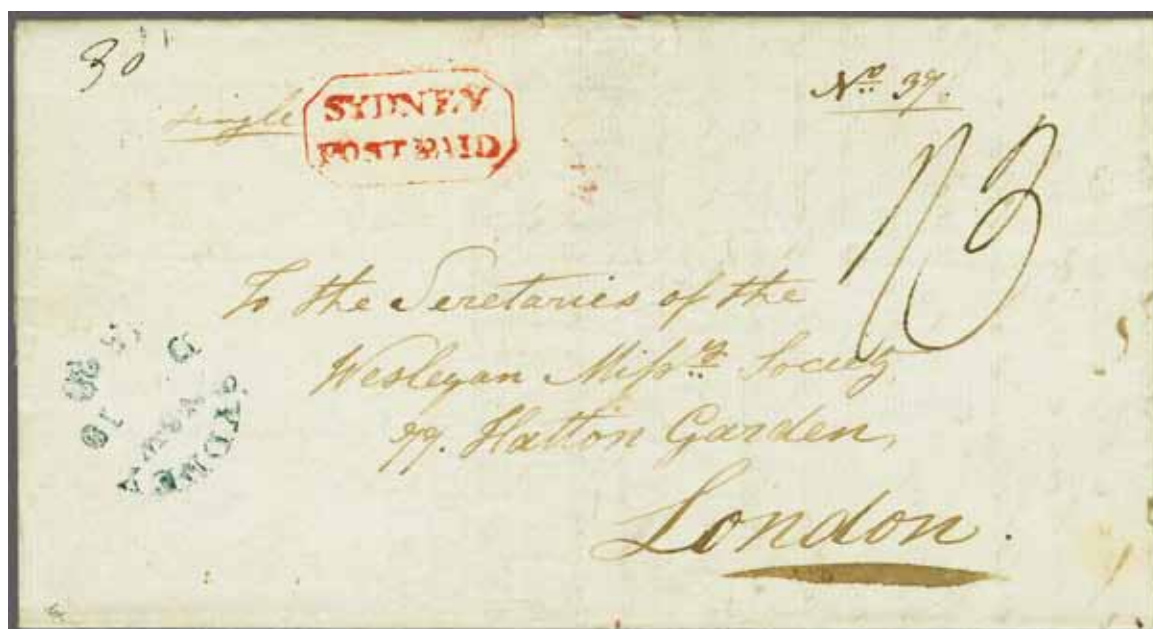 30
single
SYDNEY
POST PAID
No. 37.
13
To the Secretaries of the
Wesleyan Missy. Society
77. Hatton Garden,
London.
SYDNEY